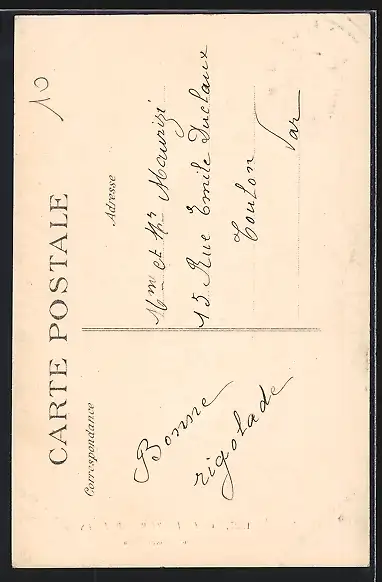 10
CARTE POSTALE
Correspondance
Adresse
Bonne
rigolade
Mme et Mr Maurizi
15 Rue Emile Duclaux
Toulon
Var